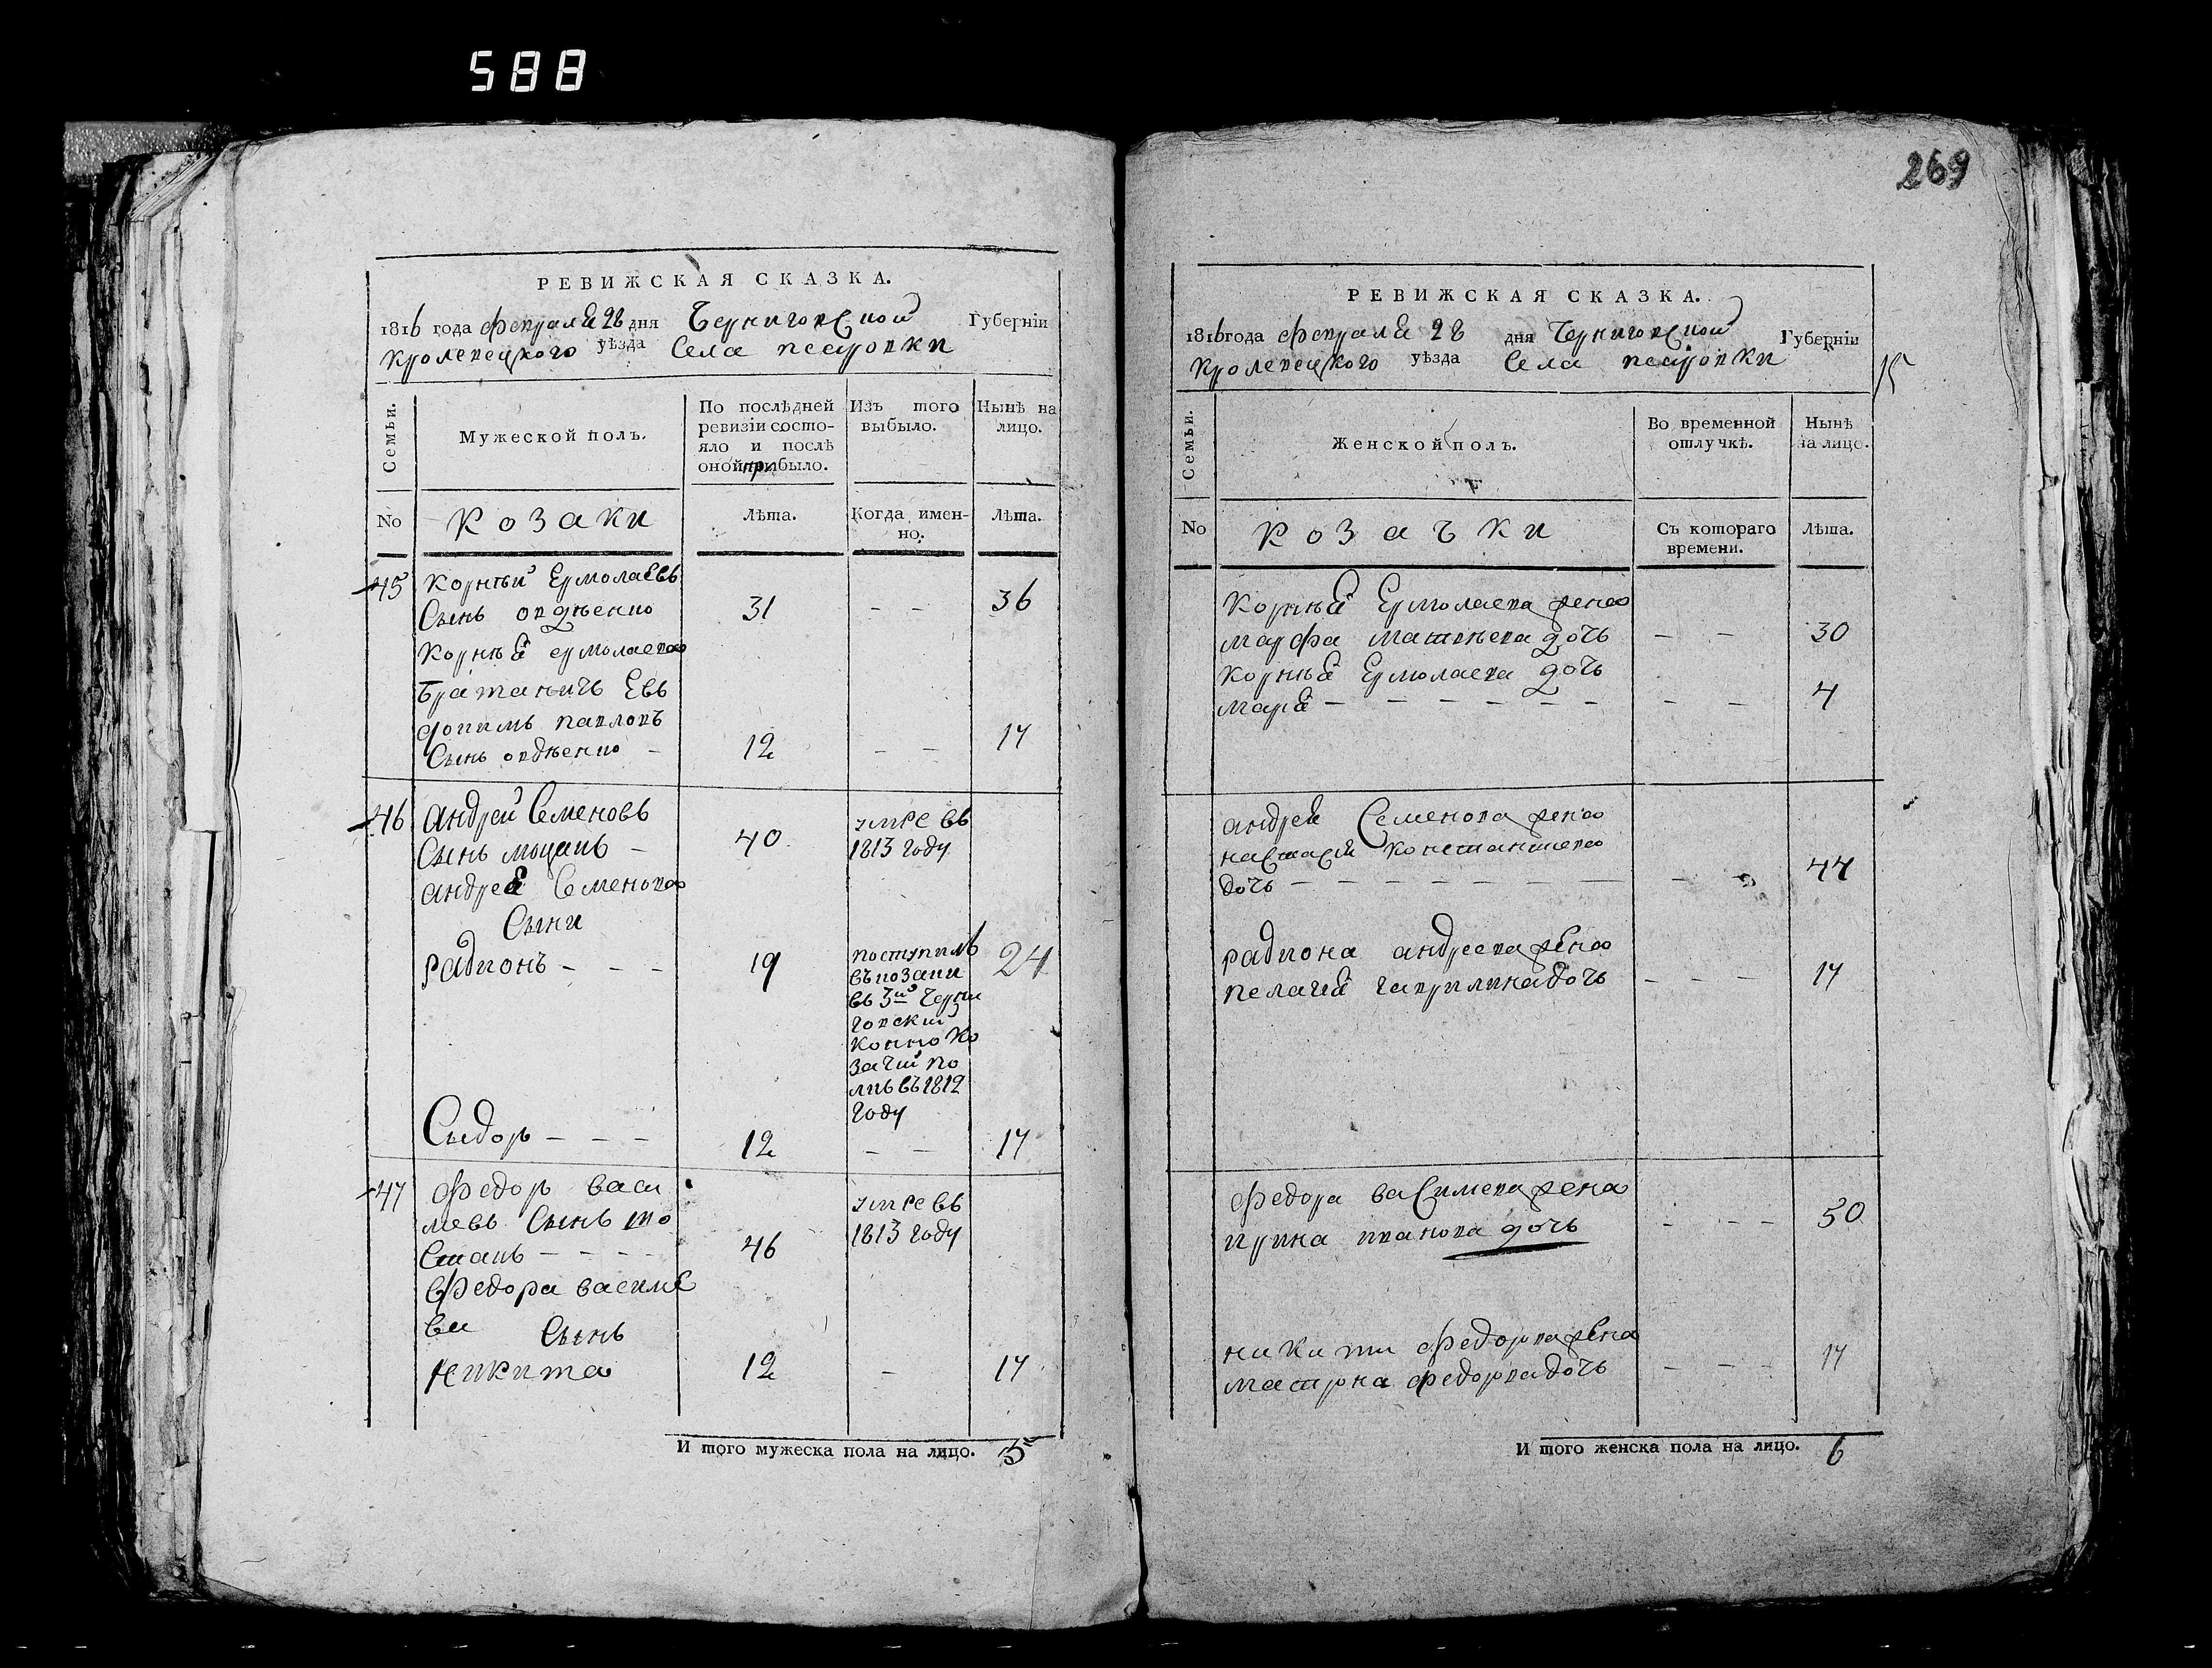 588
269
РЕВИЖСКАЯ СКАЗКА.
1816 года февраля 28 дня Черниговской Губерніи
Кролевецкого уѣзда Села
Семьи.
Мужеской полъ.
По послѣдней ревизіи состояло и послѣ оной прибыло.
Изъ того выбыло.
Нынѣ на лицо.
No
Козаки
Лѣта.
Когда именно.
Лѣта.
45 Корнѣй Ермолаевъ
Сынъ 31 – – 36
Корнѣя ермолаева
Братаничъ Ев
докимъ павловъ
Сынъ 12 – – 17
46 андрей Семеновъ умре въ
Сынъ 40 1813 году
андрея Семенова
Сыни
радионъ – – – 19 поступилъ 24
въ козаки
въ 3й Черни
говский
конно Ко
зачий по
лкъ въ 1812
году
Сыдоръ – – – 12 – – 17
47 Федоръ васи умре въ
левъ Сынъ 46 1813 году
Федора василе
ва Сынъ
никита 12 – 17
И того мужеска пола на лицо. 5
РЕВИЖСКАЯ СКАЗКА.
1816 года февраля 28 дня Черниговской Губерніи
Кролевецкого уѣзда Села
15
Семьи.
Женской полъ.
Во временной отлучкѣ.
Нынѣ на лицо.
No
Козачки
Съ котораго времени.
Лѣта.
Корнѣя Ермолаева жена
марфа матвѣева дочь – – 30
Корнѣя Ермолаева дочь
маря – – – – – – – – 4
андрея Семенова жена
настася константиева
дочь – – – – – – – – – 44
радиона андреева жена
пелагия гаврилина дочь – – – 17
Федора василева жена
ирина иванова дочь – – – 50
никити Федорва жена
матрна федорва дочь – – – 17
И того женска пола на лицо. 6